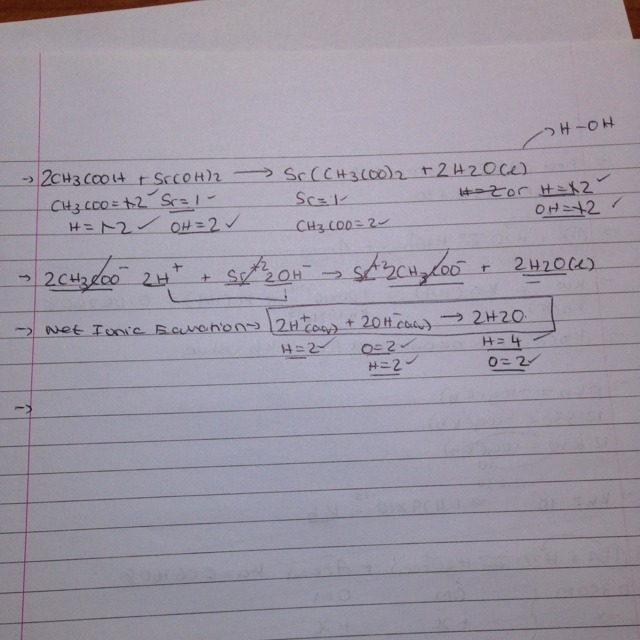 H-OH
→ 2CH3COOH + Sr(OH)2 → Sr(CH3COO)2 + 2H2O(l)
CH3COO=12✓ Sr=1✓ Sr=1✓ H=2 or H=12✓
H=12✓ OH=2✓ CH3COO=2✓ OH=12✓
→ 2CH3COO⁻ 2H⁺ + Sr⁺² 2OH⁻ → Sr⁺² 2CH3COO⁻ + 2H2O(l)
→ Net Ionic Equation → 2H⁺(aq) + 2OH⁻(aq) → 2H2O.
H=2✓ O=2✓ H=4✓
H=2✓ O=2✓
→